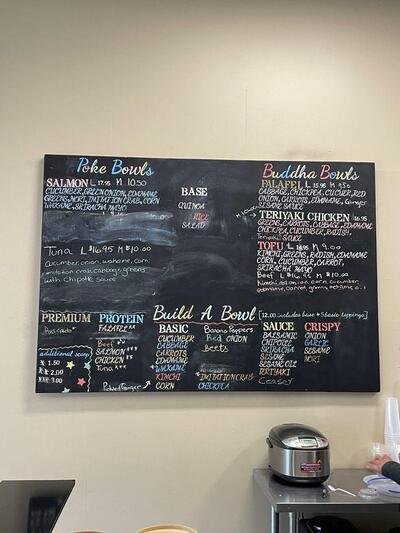 Poke Bowls
SALMON L 17.95 M 10.50
CUCUMBER, GREEN ONION, EDAMAME
GREENS, NORI, IMITATION CRAB, CORN
WAKAME, SRIRACHA MAYO
Tuna L $16.95 M $10.00
Cucumber, onion, wakame, corn,
imitation crab, cabbage, greens
with chipotle sauce
BASE
QUINOA
RICE
SALAD
Buddha Bowls
FALAFEL L 15.95 M 9.50
CABBAGE, CHICKPEA, CUCUMBER, RED
ONION, CARROTS, EDAMAME, Ginger
SESAME SAUCE
TERIYAKI CHICKEN L 16.95
GREENS, CARROTS, CABBAGE, EDAMAME
CHICKPEA, CUCUMBER, RADISH
Teriyaki SAUCE
TOFU L 15.95 M 9.00
KIMCHI, GREENS, RADISH, EDAMAME
CORN, CUCUMBER, CARROT,
SRIRACHA MAYO
Beef L $16.45 M $10.00
Kimchi, onion, corn, cucumber
edamame, carrot, greens
Build A Bowl [12.00 includes base + 5 basic toppings]
PREMIUM
Avocado
additional scoop
* 1.50
** 2.00
*** 3.00
PROTEIN
FALAFEL
Beef
SALMON ***
CHICKEN
Tuna
Pickled Ginger
BASIC
CUCUMBER
CABBAGE
CARROTS
EDAMAME
* WAKAME
KIMCHI
CORN
Banana Peppers
Red ONION
Beets
* IMITATION CRAB
CHICKPEA
SAUCE
BALSAMIC
CHIPOTLE
SRIRACHA
SESAME
SESAME OIL
TERIYAKI
Ceaser
CRISPY
ONION
GARLIC
SESAME
NORI